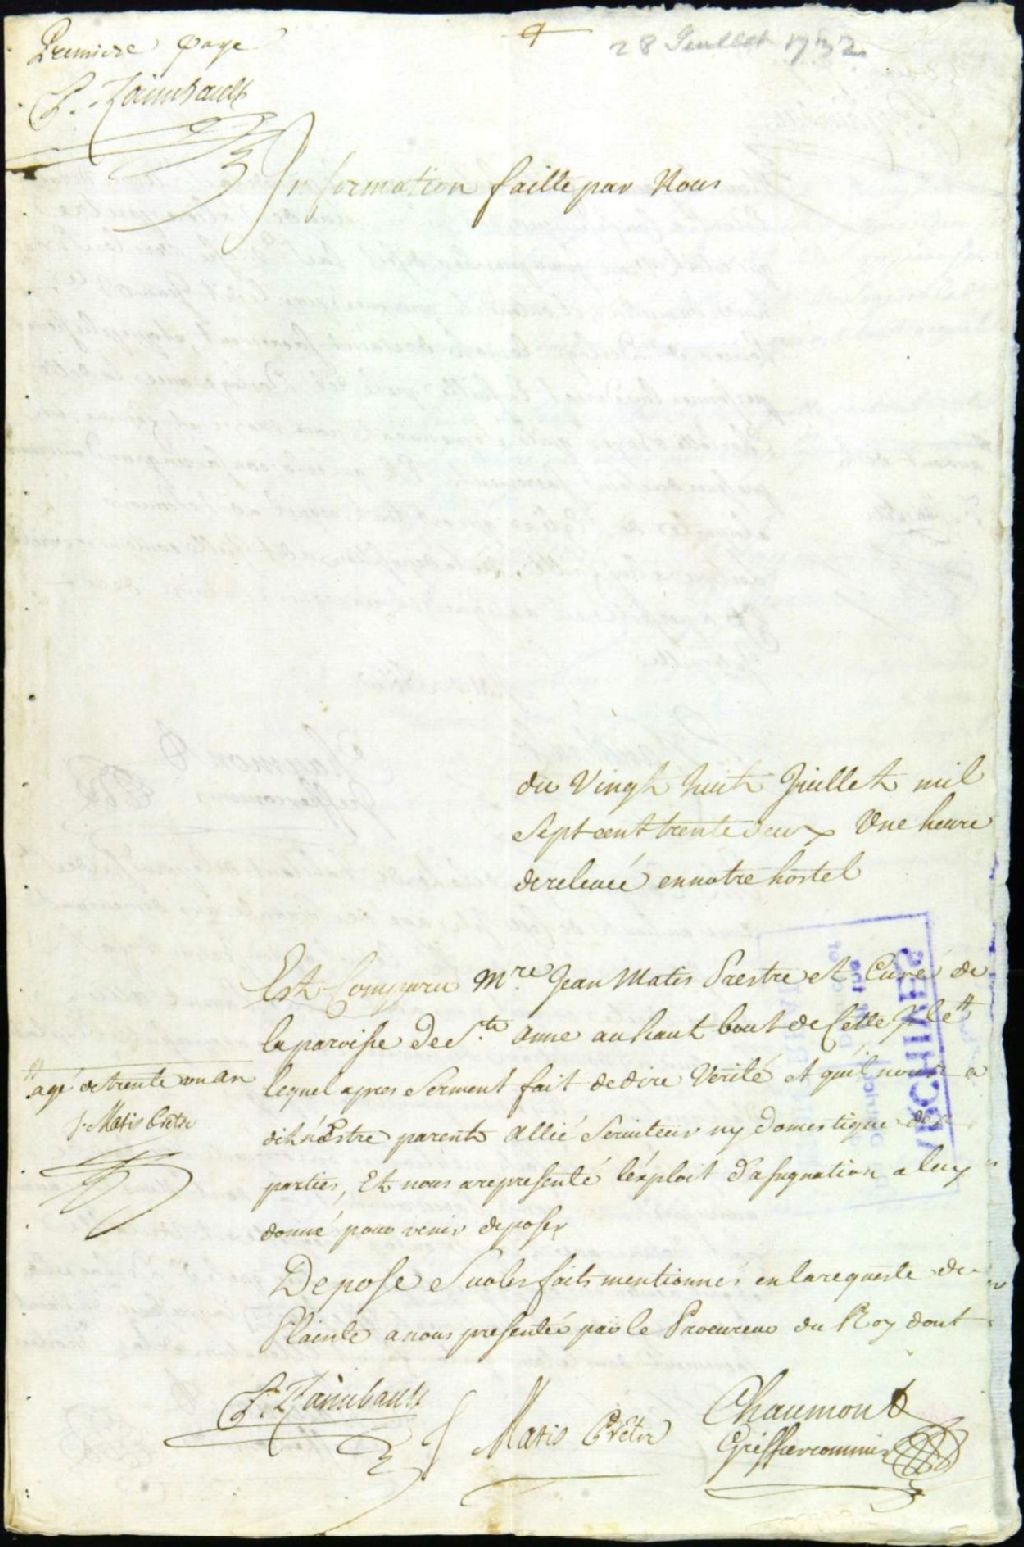 Premiere page
P. Raimbault
28 Jeuillet 1732
Information faitte par Nous
du Vingt huit Juillet mil
sept cent trente deux Une heure
de relevée en notre hostel
Est Comparu Mre Jean Matis Prestre et Curé de
la paroisse de Ste Anne au haut bout de Cette Isle #
lequel apres Serment fait de dire Verité et quil nous a
dit n'estre parent Allié Serviteur ny domestique des
parties, Et nous a representé l'exploit d'assignation a luy
donné pour venir deposer
# agé de trente un an
J. Matis Prètre
Depose Sur les faits mentionnés en la requeste de
Plainte a nous presentée par le Procureur du Roy dont
P. Raimbault
J Matis Prètre
Chaumont
Greffier commis
ARCHIVES